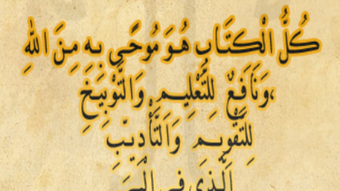 كُلُّ الْكِتَابِ هُوَ مُوحًى بِهِ مِنَ اللهِ
،وَنَافِعٌ لِلتَّعْلِيمِ وَالتَّوْبِيخِ
لِلتَّقْوِيمِ وَالتَّأْدِيبِ
الَّذِي فِي